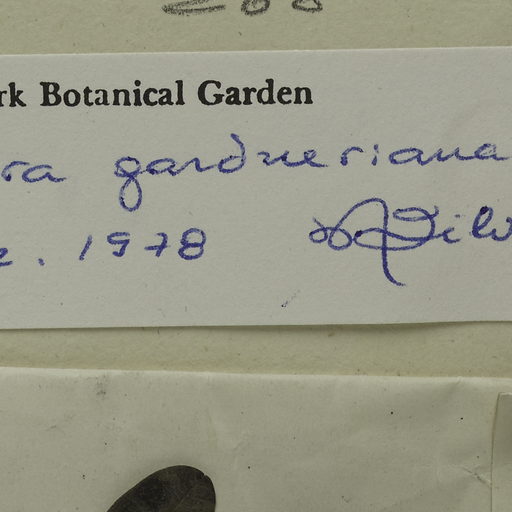 288
rk Botanical Garden
ra gardneriana
. 1978 Silv